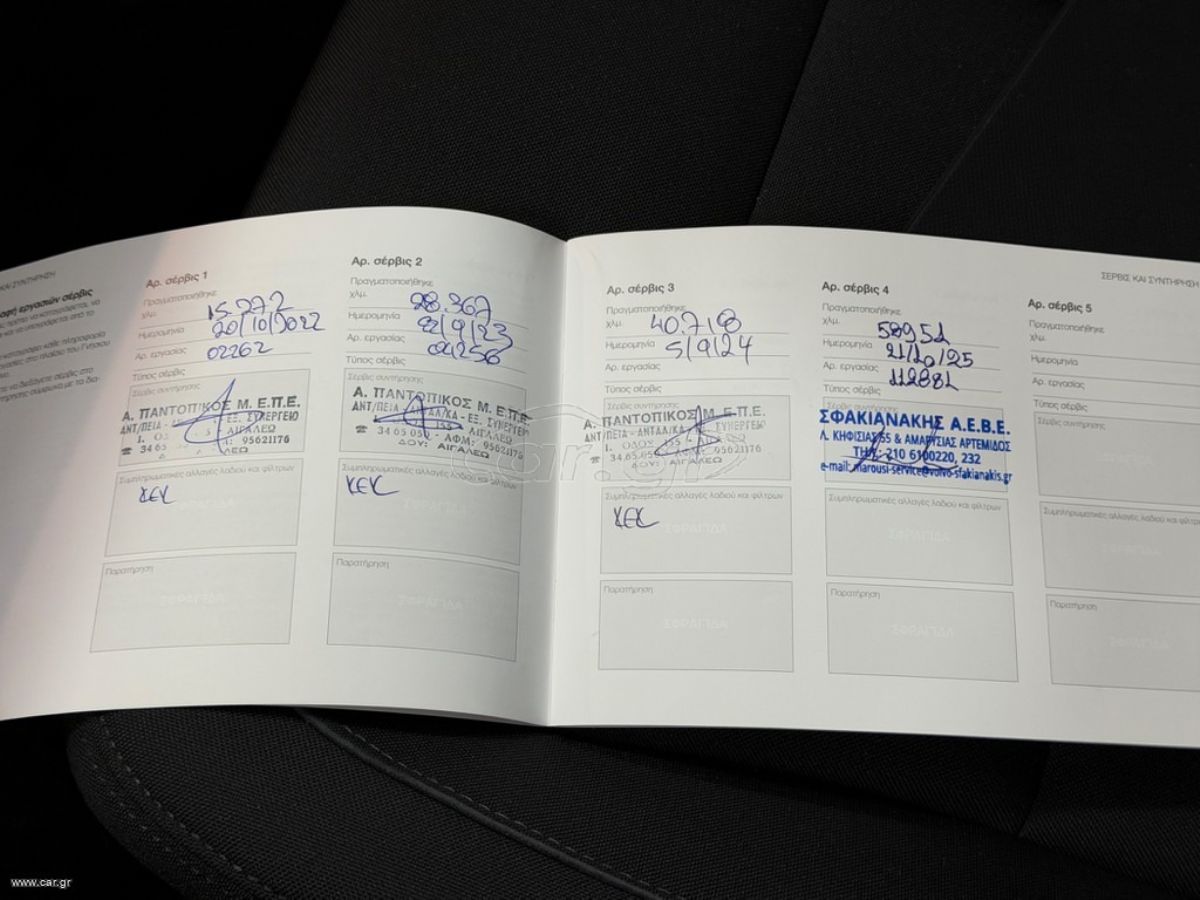 ΚΑΙ ΣΥΝΤΗΡΗΣΗ
εργασιών σέρβις
Αρ. σέρβις 1
Πραγματοποιήθηκε
χλμ. 15.272
Ημερομηνία 20/10/2022
Αρ. εργασίας 02262
Τύπος σέρβις
Σέρβις συντήρησης
Α. ΠΑΝΤΟΠΙΚΟΣ Μ. Ε.Π.Ε.
ΑΝΤ/ΠΕΙΑ - ΕΞ. ΣΥΝΕΡΓΕΙΟ
ΑΙΓΑΛΕΩ
☎ 34 65 95621176
ΔΟΥ: ΑΙΓΑΛΕΩ
Συμπληρωματικές αλλαγές λαδιού και φίλτρων
Παρατήρηση
ΣΦΡΑΓΙΔΑ
Αρ. σέρβις 2
Πραγματοποιήθηκε
χλμ. 28.367
Ημερομηνία 22/9/23
Αρ. εργασίας 04256
Τύπος σέρβις
Σέρβις συντήρησης
Α. ΠΑΝΤΟΠΙΚΟΣ Μ. Ε.Π.Ε.
ΑΝΤ/ΠΕΙΑ - ΑΝΤΑΛ/ΚΑ - ΕΞ. ΣΥΝΕΡΓΕΙΟ
ΑΙΓΑΛΕΩ
☎ 34 65 050 - ΑΦΜ: 95621176
ΔΟΥ: ΑΙΓΑΛΕΩ
Συμπληρωματικές αλλαγές λαδιού και φίλτρων
Παρατήρηση
ΣΦΡΑΓΙΔΑ
ΣΕΡΒΙΣ ΚΑΙ ΣΥΝΤΗΡΗΣΗ
Αρ. σέρβις 3
Πραγματοποιήθηκε
χλμ. 40.718
Ημερομηνία 5/9/24
Αρ. εργασίας
Τύπος σέρβις
Σέρβις συντήρησης
Α. ΠΑΝΤΟΠΙΚΟΣ Μ. Ε.Π.Ε.
ΑΝΤ/ΠΕΙΑ - ΑΝΤΑΛ/ΚΑ ΣΥΝΕΡΓΕΙΟ
Ι. ΟΔΟΣ 155 ΑΙΓΑΛΕΩ
☎ 34 65 95621176
ΔΟΥ: ΑΙΓΑΛΕΩ
Συμπληρωματικές αλλαγές λαδιού και φίλτρων
Παρατήρηση
ΣΦΡΑΓΙΔΑ
Αρ. σέρβις 4
Πραγματοποιήθηκε
χλμ. 58951
Ημερομηνία 21/10/25
Αρ. εργασίας 112881
Τύπος σέρβις
ΣΦΑΚΙΑΝΑΚΗΣ Α.Ε.Β.Ε.
Λ. ΚΗΦΙΣΙΑΣ 55 & ΑΜΑΡΥΣΙΑΣ ΑΡΤΕΜΙΔΟΣ
ΤΗΛ: 210 6100220, 232
e-mail: marousi-service@volvo-sfakianakis.gr
Συμπληρωματικές αλλαγές λαδιού και φίλτρων
ΣΦΡΑΓΙΔΑ
Παρατήρηση
ΣΦΡΑΓΙΔΑ
Αρ. σέρβις 5
Πραγματοποιήθηκε
χλμ.
Ημερομηνία
Αρ. εργασίας
Τύπος σέρβις
Σέρβις συντήρησης
Συμπληρωματικές αλλαγές λαδιού και φίλτρων
Παρατήρηση
car.gr
www.car.gr